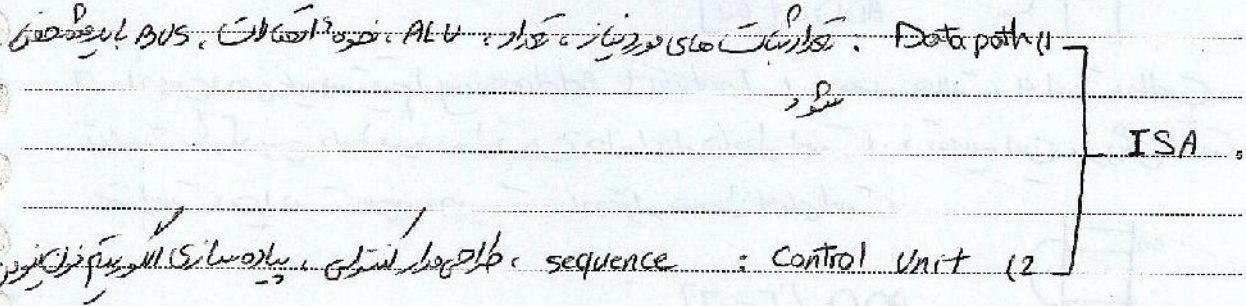 1) Data path : تعداد ثبات های مورد نیاز ، تعداد ALU ، نحوه اتصالات ، BUS باید مشخص
شود
ISA
2) Control Unit : sequence ، طراحی مدار کنترلی ، پیاده سازی الگوریتم فون نیومن